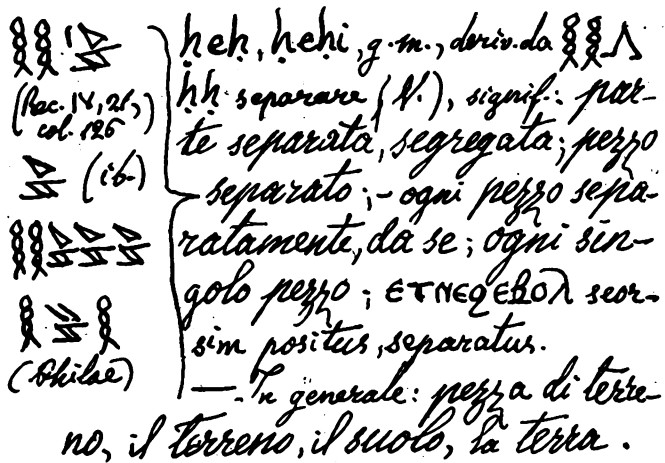 𓎛𓎛
(Rec. IV, 21, col. 126)
(ib.)
𓎛𓎛
𓎛 𓎛
(Philae)
ḥeḥ, ḥeḥi, g. m., deriv. da 𓎛𓎛𓂻
ḥḥ separare (V.), signif.: par-
te separata, segregata; pezzo
separato; – ogni pezzo sepa-
ratamente, da se; ogni sin-
golo pezzo; ⲉⲧⲛⲉϩⲉⲃⲟⲗ seor-
sim positus, separatus.
—. In generale: pezza di terre-
no, il terreno, il suolo, la terra.